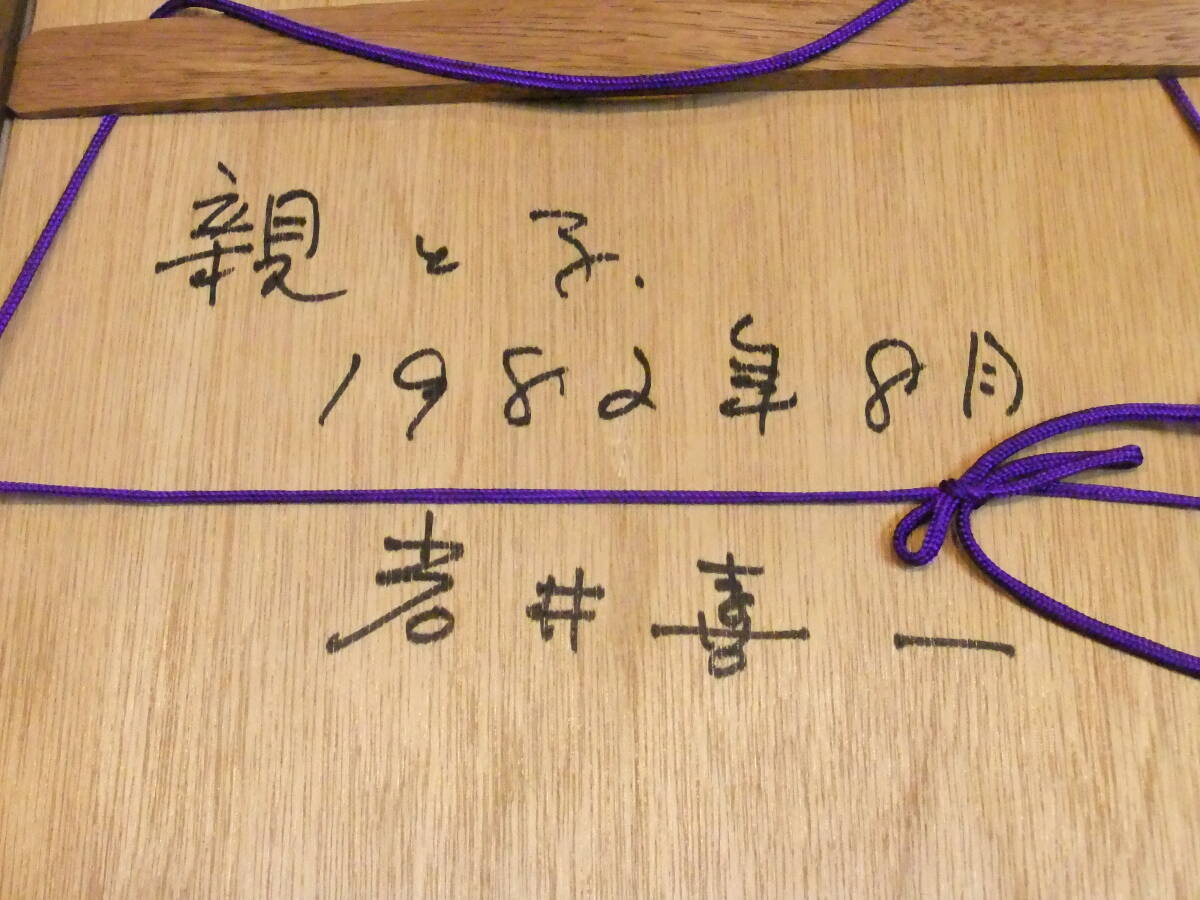 親と子.
1982年8月
若井喜一